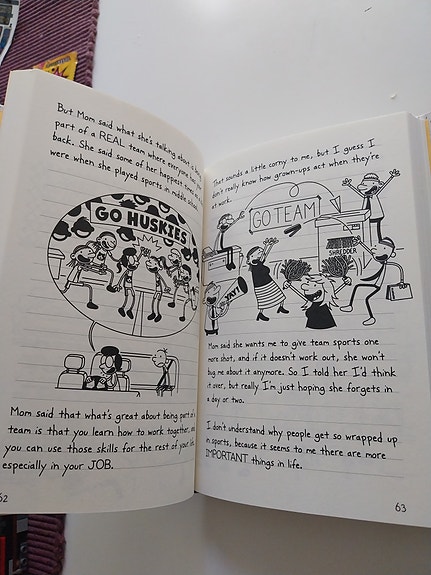 But Mom said what she's talking about is
part of a REAL team where everyone
back. She said some of her happiest times
were when she played sports in middle school.
GO HUSKIES
Mom said that what's great about being part of
team is that you learn how to work together, and
you can use those skills for the rest of your life,
especially in your JOB.
62
That sounds a little corny to me, but I guess I
don't really know how grown-ups act when they're
at work.
GO TEAM
SHREDDER
YAY
Mom said she wants me to give team sports one
more shot, and if it doesn't work out, she won't
bug me about it anymore. So I told her I'd think
it over, but really I'm just hoping she forgets in
a day or two.
I don't understand why people get so wrapped up
in sports, because it seems to me there are more
IMPORTANT things in life.
63